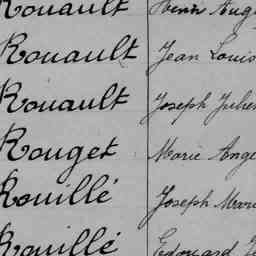 Rouault Henri Aug
Rouault Jean Louis
Rouault Joseph Julien
Rouget Marie Ange
Rouillé Joseph Marie
Rouillé Edouard